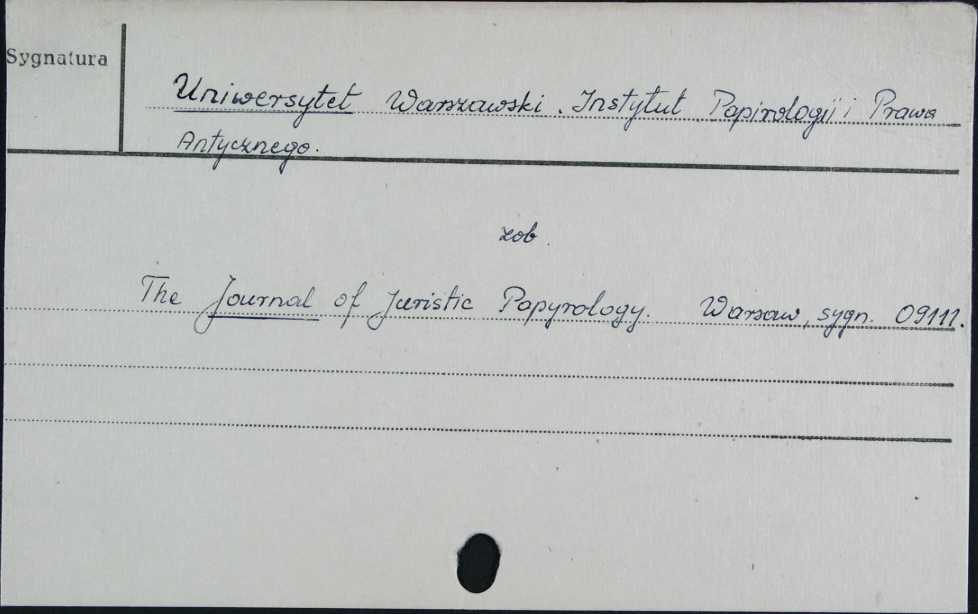 Sygnatura
Uniwersytet Warszawski. Instytut Papirologii i Prawa
Antycznego.
zob.
The Journal of Juristic Papyrology. Warsaw, sygn. 09111.